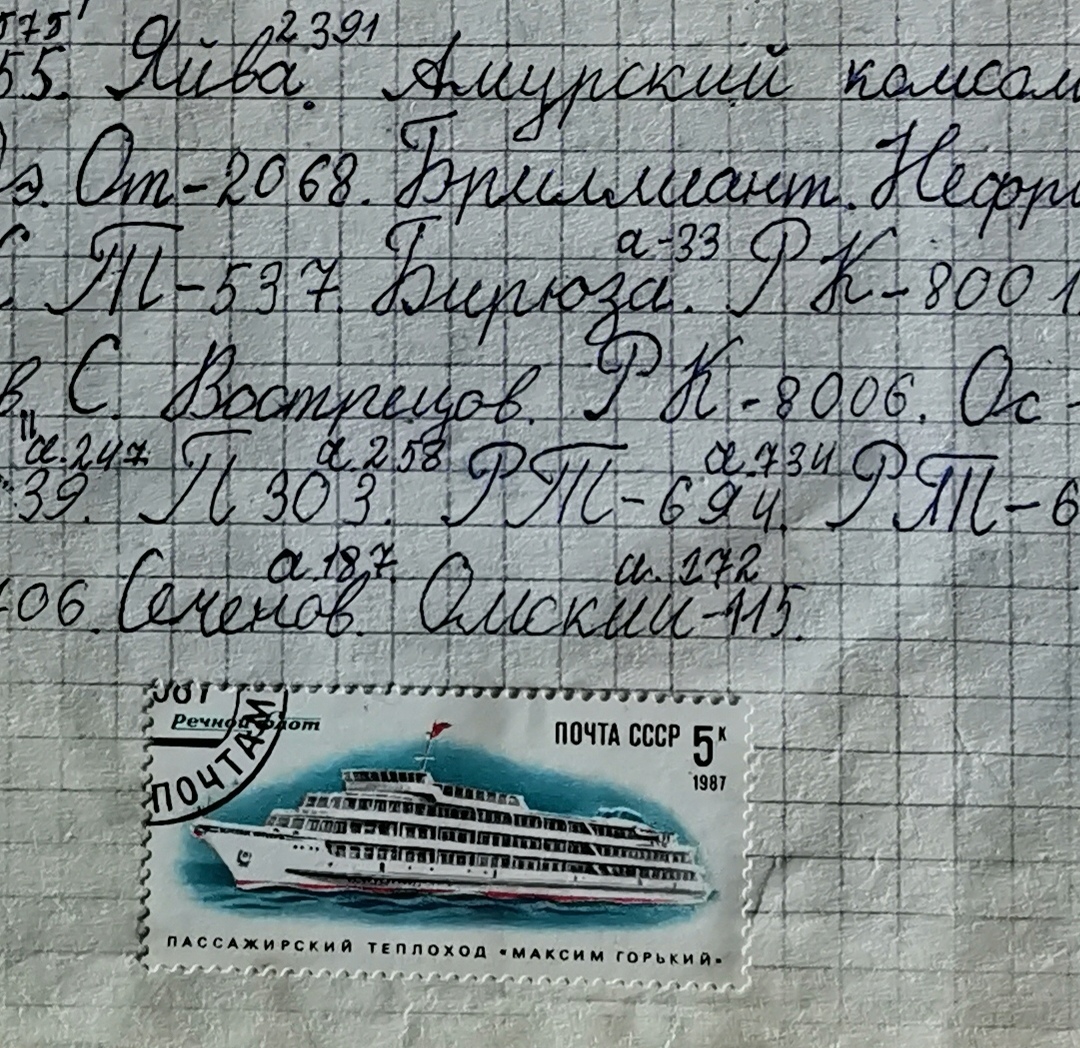 575 2391
55. Яйва. Амурский комсом
От-2068. Бриллиант. Нефри
а-33
Т-537. Бирюза. РК-8001
в. С. Вострецов. РК-8006. Ос-
а.247 а.258 а.734
39. П 303. РТ-694. РТ-6
а.187. а.172
06. Сеченов. Омский-115.
Речной флот
ПОЧТА СССР 5к
1987
ПОЧТАМ
ПАССАЖИРСКИЙ ТЕПЛОХОД «МАКСИМ ГОРЬКИЙ»